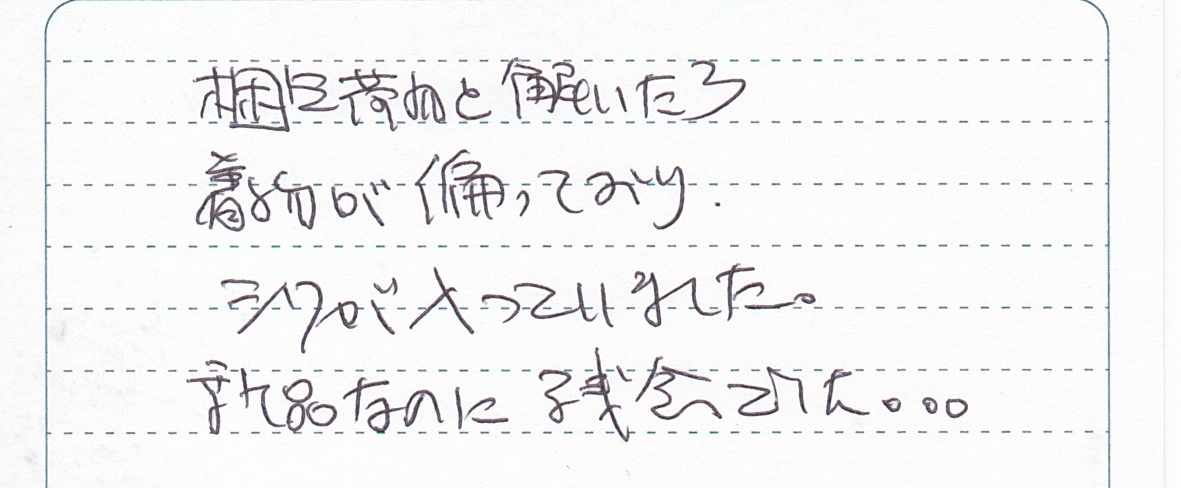 梱包荷物を解いたら
着物が偏っており.
シワが入っていました。
新品なのに残念でした。。。